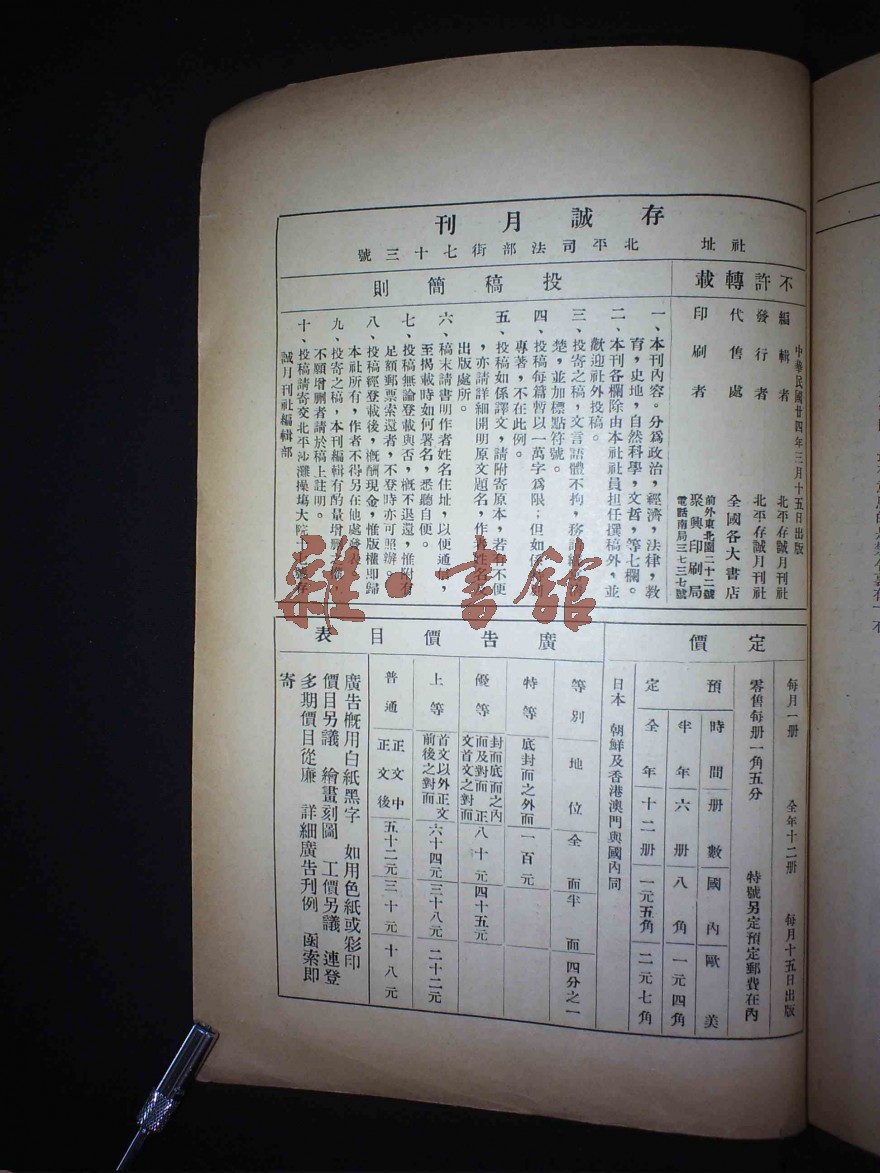 存誠月刊
社址 北平司法部街七十三號
不許轉載
中華民國廿四年三月十五日出版
編輯者 北平存誠月刊社
發行者 北平存誠月刊社
代售處 全國各大書店
印刷者 聚興印刷局
前外東北園二十二號
電話南局三七三七號
投稿簡則
一、本刊內容。分爲政治，經濟，法律，教
育，史地，自然科學，文哲，等七欄。
二、本刊各欄除由本社社員担任撰稿外，並
歡迎社外投稿。
三、投寄之稿，文言語體不拘，務請繕寫清
楚，並加標點符號。
四、投稿每篇暫以一萬字爲限；但如係特刊
專著，不在此例。
五、投稿如係譯文，請附寄原本，若有不便
，亦請詳細開明原文題名，作者姓名及
出版處所。
六、稿末請書明作者姓名住址，以便通信，
至揭載時如何署名，悉聽自便。
七、投稿無論登載與否，概不退還，惟附有
足額郵票索還者，不登時亦可照辦。
八、投稿經登載後，概酬現金，惟版權即歸
本社所有，作者不得另在他處發表。
九、投寄之稿，本刊編輯有酌量增刪之
不願增删者請於稿上註明。
十、投稿請寄交北平沙灘操塲大院十七號存
誠月刊社編輯部
定價
每月一册 全年十二册 每月十五日出版
零售每册一角五分 特號另定預定郵費在內
預定
時間 册數 國內 歐美
半年 六册 八角 一元四角
全年 十二册 一元五角 二元七角
日本 朝鮮及香港澳門與國內同
廣告價目表
等別 地位 全面 半面 四分之一
特等 底封面之外面 一百元
優等 封面底面之內面及對面 正文首文之對面 八十元 四十五元
上等 首文以外正文前後之對面 六十四元 三十八元 二十二元
普通 正文中正文後 五十二元 三十元 十八元
廣告概用白紙黑字 如用色紙或彩印
價目另議 繪畫刻圖 工價另議 連登
多期價目從廉 詳細廣告刋例 函索即
寄
雜·書館